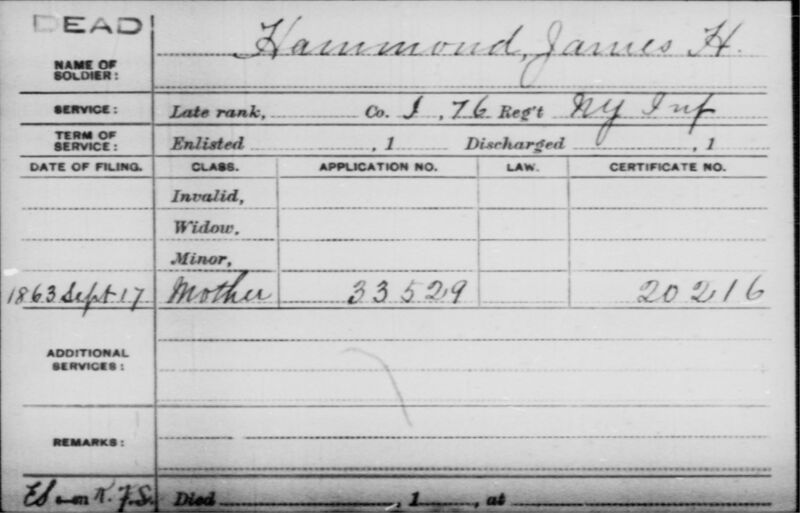 DEAD
NAME OF SOLDIER: Hammond, James H.
SERVICE: Late rank, Co. I, 76 Reg't NY Inf
TERM OF SERVICE: Enlisted , 1 Discharged , 1
DATE OF FILING. CLASS. APPLICATION NO. LAW. CERTIFICATE NO.
Invalid,
Widow,
Minor,
1863 Sept 17 Mother 33529 20216
ADDITIONAL SERVICES:
REMARKS:
Died , 1 , at